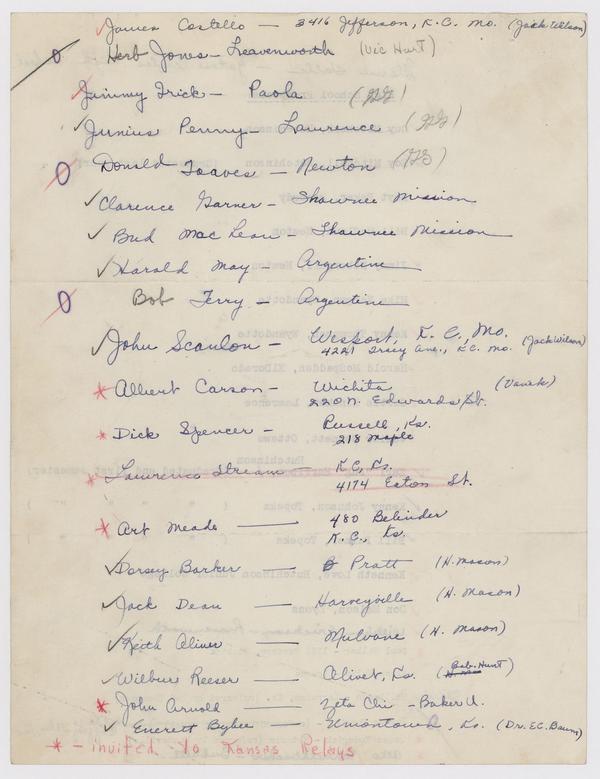 ✓ James Costello — 3416 Jefferson, K.C. Mo. (Jack Wilson)
0 Herb Jones — Leavenworth (Vic Hurt)
✓ Jimmy Trick — Paola
✓ Junius Penny — Lawrence
0 Donald Toaves — Newton
✓ Clarence Garner — Shawnee Mission
✓ Bud MacLean — Shawnee Mission
✓ Harold May — Argentine
0 Bob Terry — Argentine
✓ John Scanlon — Westport, K.C., Mo.
4221 Tracy Ave., K.C. Mo. (Jack Wilson)
* Albert Carson — Wichita (Vanek)
220 N. Edwards St.
* Dick Spencer — Russell, Ks.
218 Maple
* Lawrence Stream — K.C., Ks.
4174 Eaton St.
* Art Meade — 480 Belinder
K.C., Ks.
✓ Dorsey Barker — Pratt (H. Mason)
✓ Jack Dean — Harveyville (H. Mason)
✓ Keith Oliver — Mulvane (H. Mason)
✓ Wilbur Reeser — Olivet, Ks. (Bob. Hunt)
* John Arnold — Zeta Chi - Baker U.
✓ Everett Bybee — Uniontown, Ks. (Dr. E.C. Baum)
* - invited to Kansas Relays